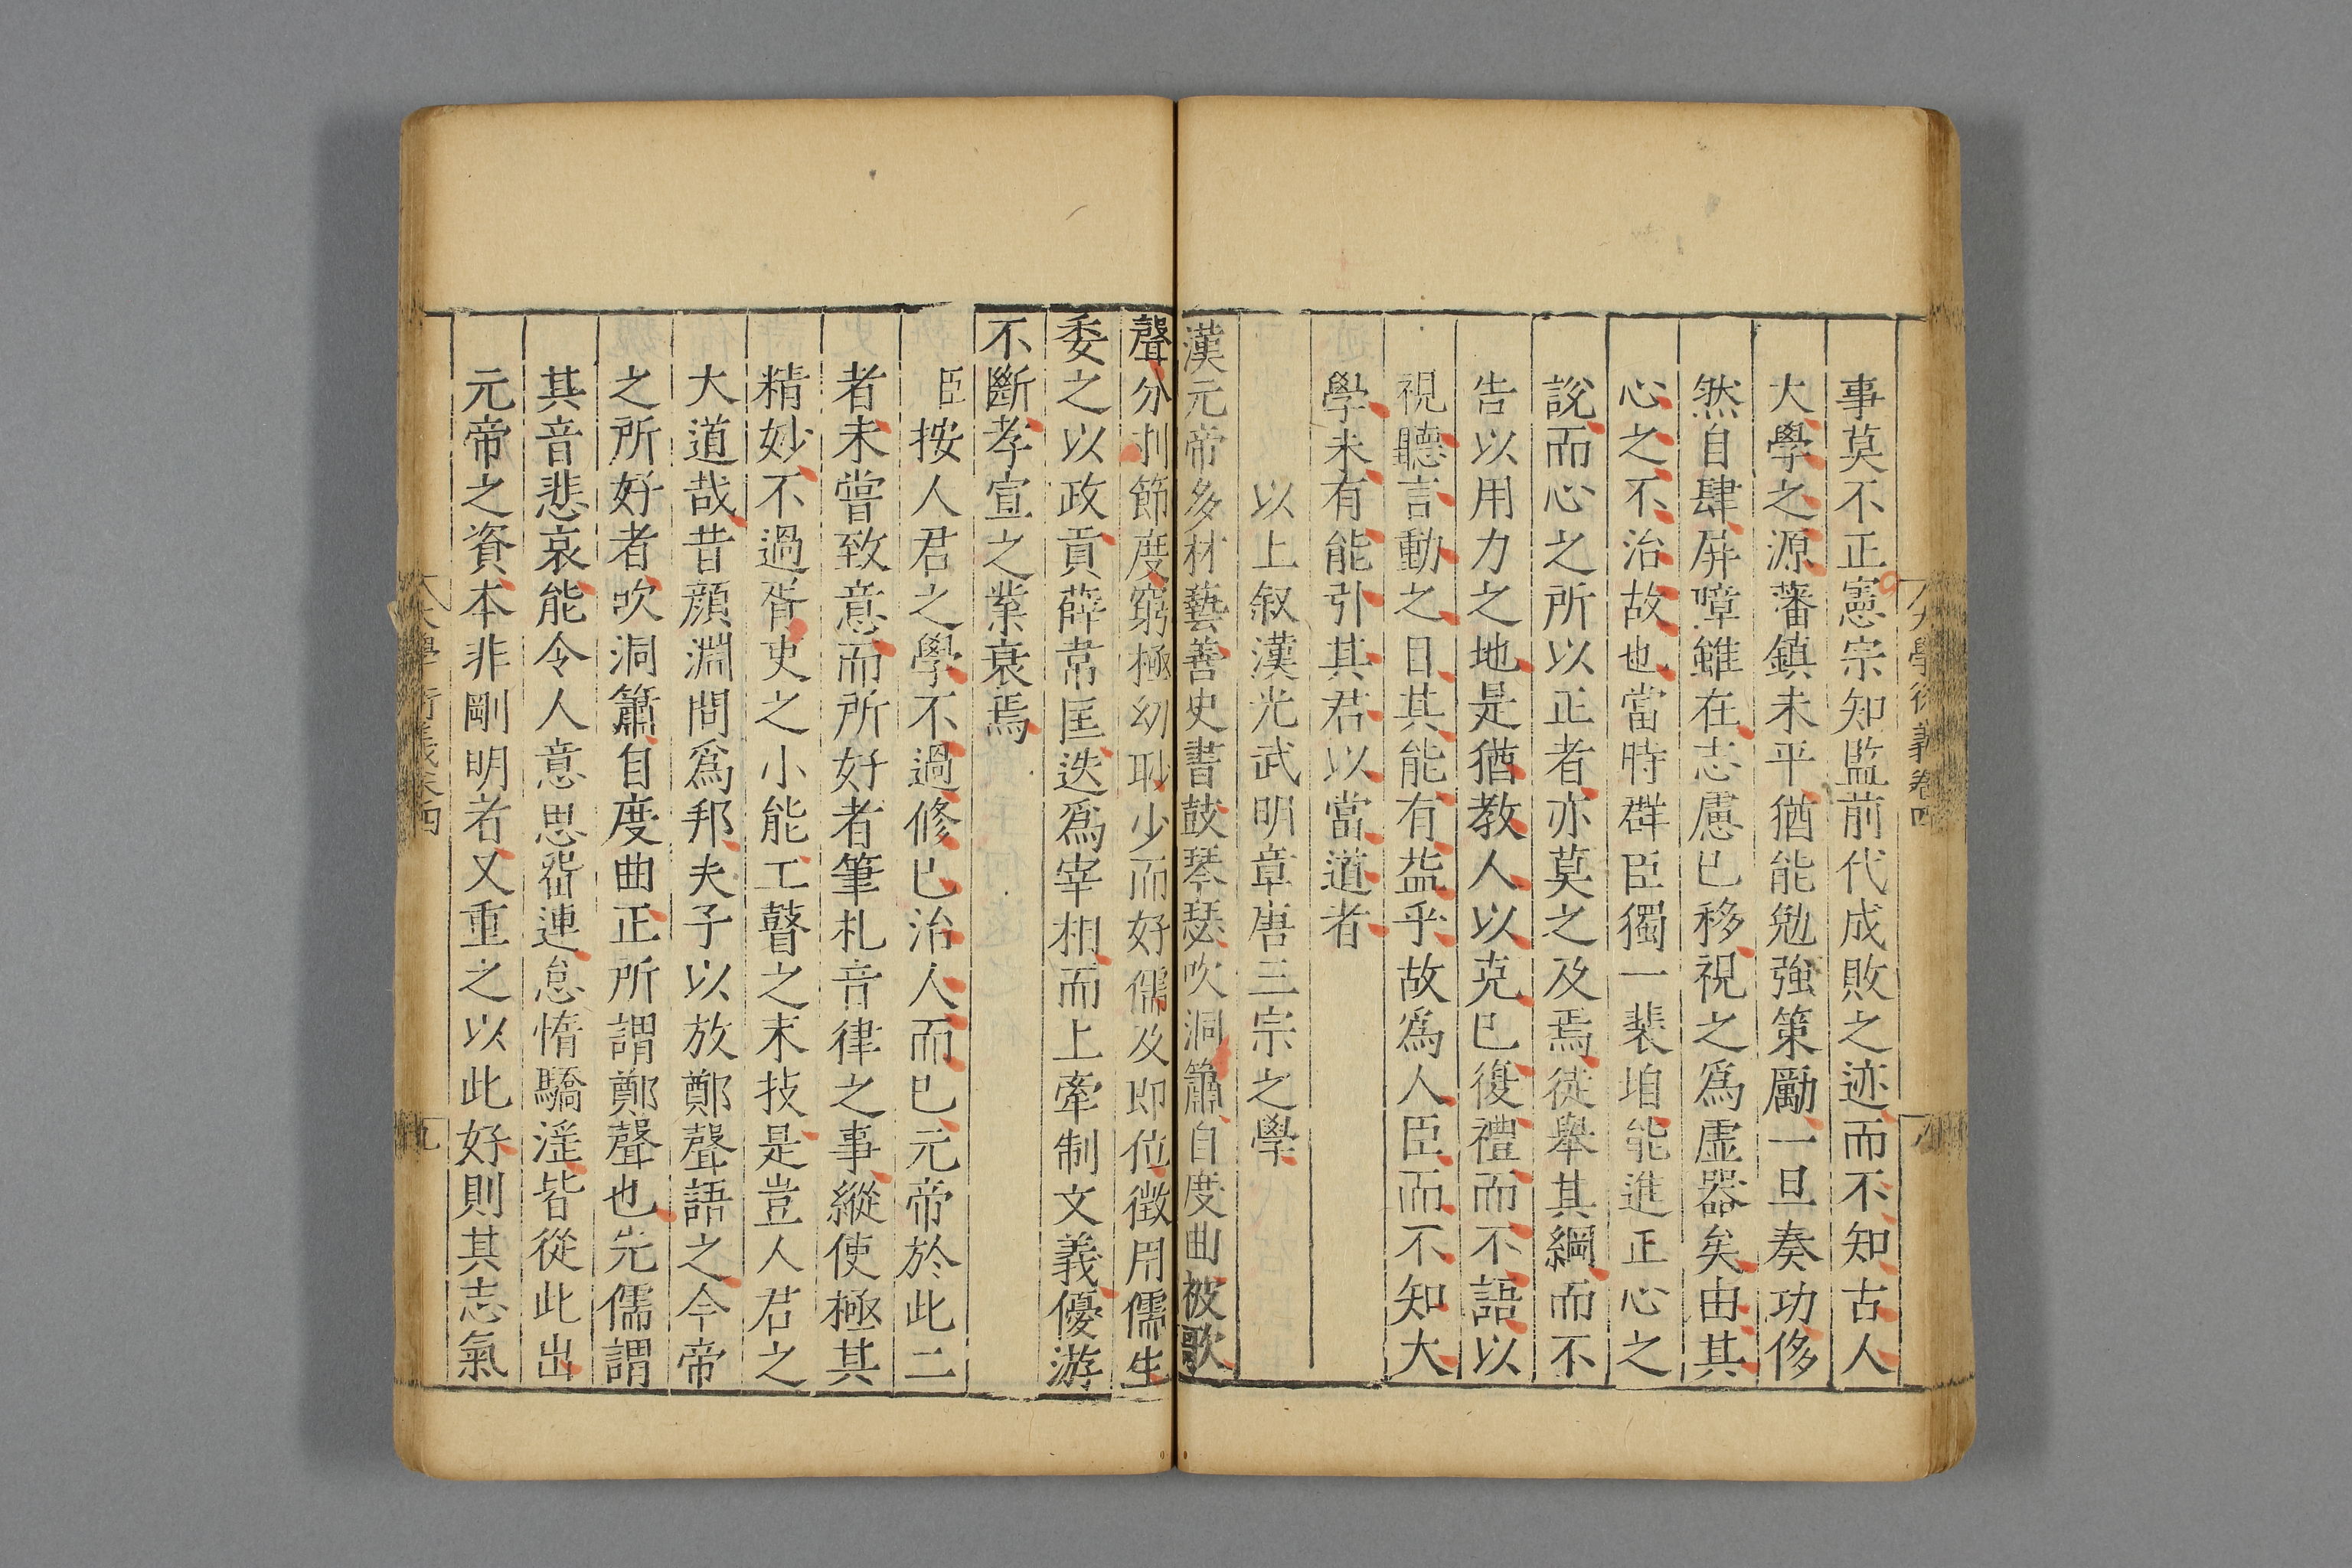 事莫不正憲宗知監前代成敗之迹而不知古人
大學之源藩鎮未平猶能勉強策勵一旦奏功侈
然自肆屏嶂雖在志慮已移視之爲虛器矣由其
心之不治故也當時群臣獨一裴垍能進正心之
說而心之所以正者亦莫之及焉徒舉其綱而不
告以用力之地是猶教人以克已復禮而不語以
視聽言動之目其能有益乎故爲人臣而不知大
學未有能引其君以當道者
以上叙漢光武明章唐三宗之學
漢元帝多材藝善史書鼓琴瑟吹洞簫自度曲被歌
聲分刌節度窮極幼眇少而好儒及即位徵用儒生
委之以政貢薛韋匡迭爲宰相而上牽制文義優游
不斷孝宣之業衰焉
臣按人君之學不過修已治人而已元帝於此二
者未嘗致意而所好者筆札音律之事縱使極其
精妙不過胥吏之小能工瞽之末技是豈人君之
大道哉昔顔淵問爲邦夫子以放鄭聲語之今帝
之所好者吹洞簫自度曲正所謂鄭聲也先儒謂
其音悲哀能令人意思㽞連怠惰驕淫皆從此出
元帝之資本非剛明者又重之以此好則其志氣
大學衍義卷四
八
大學衍義卷四
九